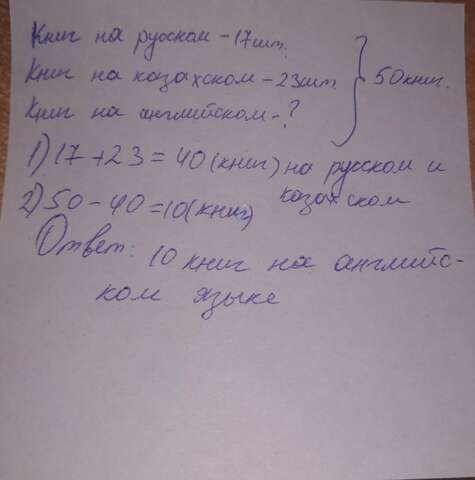 Книг на русском – 17шт.
Книг на казахском – 23шт
Книг на английском – ?
} 50 книг.
1) 17 + 23 = 40 (книг) на русском и
казахском
2) 50 – 40 = 10 (книг)
Ответ: 10 книг на английс-
ком языке